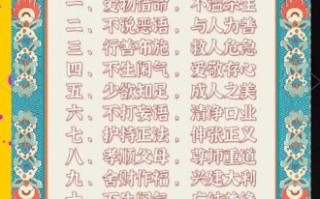 一、爱物惜命，不滥杀生
二、不说恶语，与人为善
三、行善布施，救人危急
四、不生闲气，爱敬存心
五、少欲知足，成人之美
六、不打妄语，清净口业
七、护持正法，伸张正义
八、孝顺父母，尊师重道
九、舍财作福，兴建大利
十、不生闲气，广结善缘